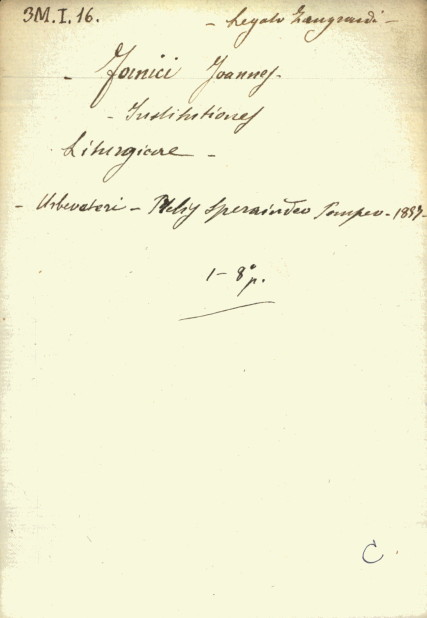 3M.I.16.
- Legato Zangrandi -
- Fornici Joannes -
- Institutiones
Liturgicae -
- Urbeveteri - Sperandeo Pompeo - 1857 -
1 - 8° p.
C.